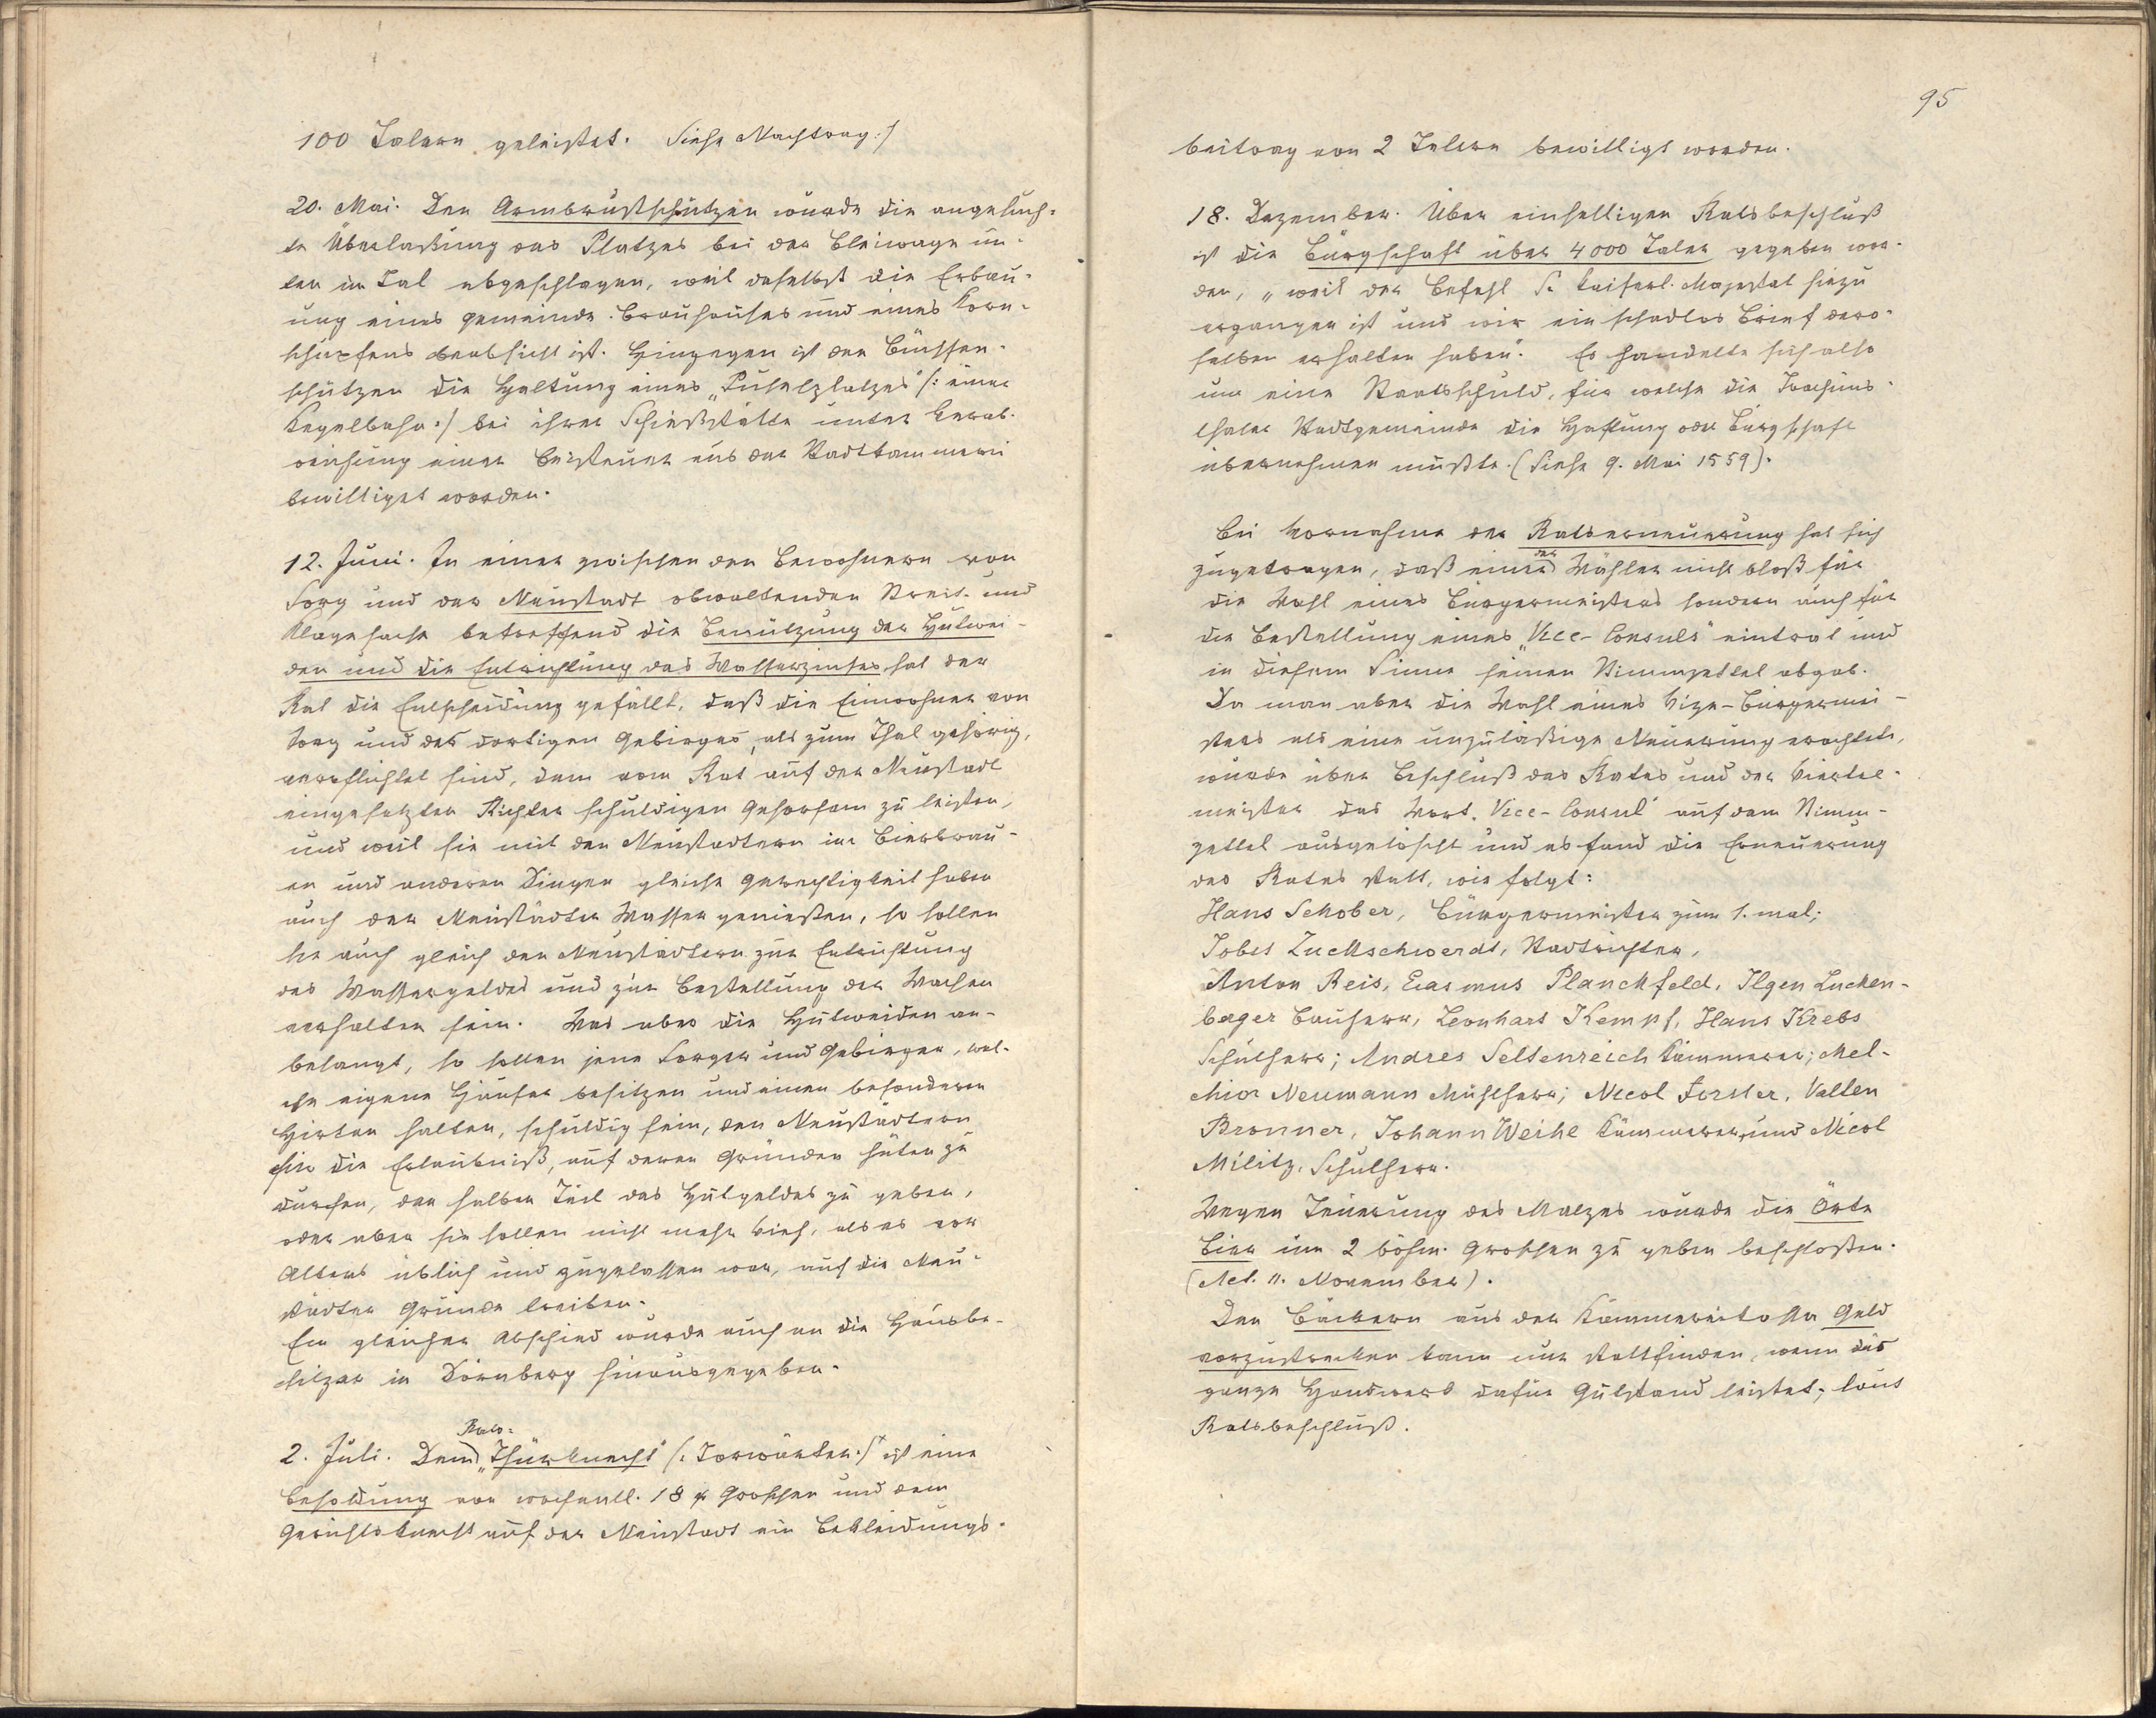 100 Talern geleistet. Siehe Nachtrag :/
20. Mai. Den Armbrustschützen wurde die angesuch-
te Überlaßung des Platzes bei der Bleiwage un-
ten im Tal abgeschlagen, weil daselbst die Erbau-
ung eines gemeinde-Brauhauses und eines Korn-
schupfens beabsicht ist. Hingegen ist den Büchsen-
schützen die Haltung eines „Puselplatzes" /: einer
Kegelbahn :/ bei ihrer Schießstätte unter Verab-
reichung einer Beisteuer aus der Stadtkammerei
bewilliget worden.
12. Juni. In einer zwischen den Bewohnern von
Sorg und der Neustadt obwaltenden Streit- und
Klagesache betreffend die Benützung der Hutwei-
den und die Entrichtung des Wasserzinses hat der
Rat die Entscheidung gefällt, daß die Einwohner von
Sorg und des dortigen Gebirges, als zum Thal gehörig,
verpflichtet sind, dem vom Rat auf der Neustadt
eingesetzten Richter schuldigen Gehorsam zu leisten,
und weil sie mit den Neustadtern im Bierbrau-
en und anderen Dingen gleiche Gerechtigkeit haben
auch der Neustädter Wasser genießen, so sollen
sie auch gleich den Neustädtern zur Entrichtung
des Wassergeldes und zur Bestellung der Wachen
verhalten sein. Was aber die Hutweiden an-
belangt, so sollen jene Sorger und Gebirger, wel-
che eigene Häuser besitzen und einen besonderen
Hirten halten, schuldig sein, den Neustädtern
für die Erlaubniß, auf deren Gründen hüten zu
dürfen, den halben Teil des Hutgeldes zu geben,
oder aber sie sollen nicht mehr Vieh, als es vor
Alters üblich und zugelassen war, auf die Neu-
städter Gründe treiben.
Ein gleicher Abschied wurde auch an die Hausbe-
sitzer in Dürnberg hinausgegeben.
2. Juli. Dem Rats- „Thürknecht" /: Torwärter :/ ist eine
Besoldung von wochentl. 18 Groschen und dem
Gerichtsknecht auf der Neustadt ein Bekleidungs-
95
beitrag von 2 Talern bewilligt worden.
18. Dezember. Über einhelligen Ratsbeschluß
ist die Bürgschaft über 4000 Taler gegeben wor-
den, „weil der Befehl Sr. kaiserl. Majestat hiezu
ergangen ist und wir ein schadlos Brief dero-
selben erhalten haben". Es handelte sich also
um eine Staatsschuld, für welche die Joachims-
thaler Stadtgemeinde die Haftung oder Bürgschaft
übernehmen mußte. (Siehe 9. Mai 1559).
Bei Vornahme der Ratserneuerung hat sich
zugetragen, daß einer der Wähler nicht bloß für
die Wahl eines Bürgermeisters sondern auch für
die Bestellung eines „Vice-Consuls" eintrat und
in diesem Sinne seinen Stimmzettel abgab.
Da man aber die Wahl eines Vize-Bürgermei-
sters als eine unzuläßige Neuerung erachtete,
wurde über Beschluß des Rates und der Viertel-
meister das Wort „Vice-Consul" auf dem Stimm-
zettel ausgelöscht und es fand die Erneuerung
des Rates statt, wie folgt:
Hans Schober, Bürgermeister zum 1. mal;
Jobst Zuckschwerdt, Stadtrichter,
Anton Reis, Erasmus Planckfeld, Ilgen Lucken-
berger Bauherrn, Leonhart Kempf, Hans Krebs
Schulherr; Andres Seltenreich Kämmerer; Mel-
chior Neumann Mühlherr; Nicol Forster, Valten
Bronner, Johann Weihe Kämmerer, und Nicol
Militz, Schulherr.
Wegen Teuerung des Malzes wurde die Örte
Bier um 2 böhm. Groschen zu geben beschloßen.
(Act. 11. November).
Den Bäckern aus der Kämmereikasse Geld
vorzustrecken kann nur stattfinden, wenn das
ganze Handwerk dafür Gutstand leistet, laut
Ratsbeschluß.